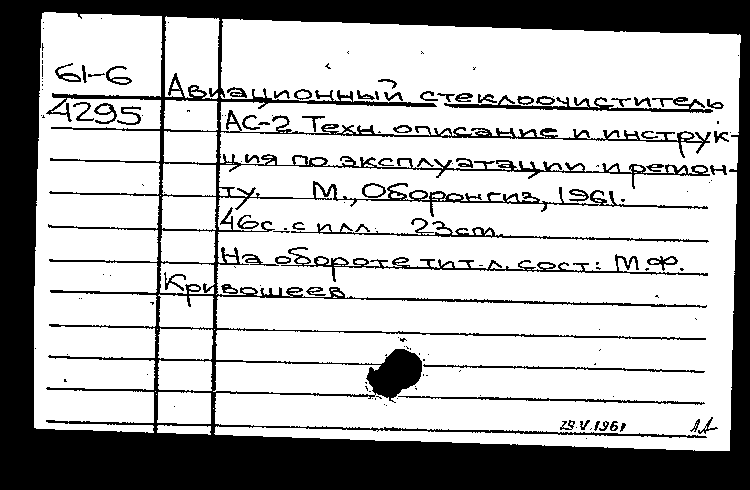 61-6
4295
Авиационный стеклоочиститель
АС-2. Техн. описание и инструк-
ция по эксплуатации и ремон-
ту. М., Оборонгиз, 1961.
46с. с илл. 23см.
На обороте тит. л. сост.: М.Ф.
Кривошеев.
29.V.1961